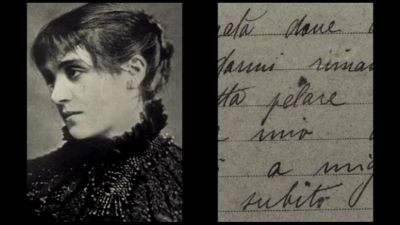 gata dove
darmi rima
tta pelare
mio
a mig
subito